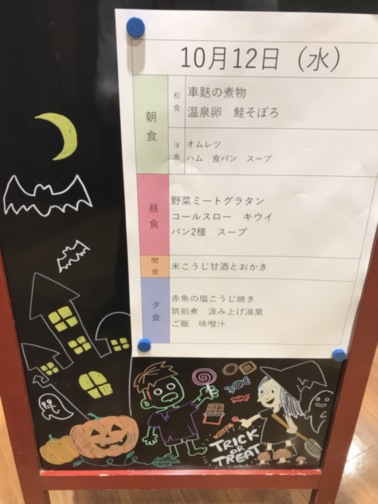 10月12日（水）
朝食
和食
車麩の煮物
温泉卵　鮭そぼろ
洋食
オムレツ
ハム　食パン　スープ
昼食
野菜ミートグラタン
コールスロー　キウイ
パン2種　スープ
間食
米こうじ甘酒とおかき
夕食
赤魚の塩こうじ焼き
筑前煮　汲み上げ湯葉
ご飯　味噌汁
TRICK
OR
TREAT